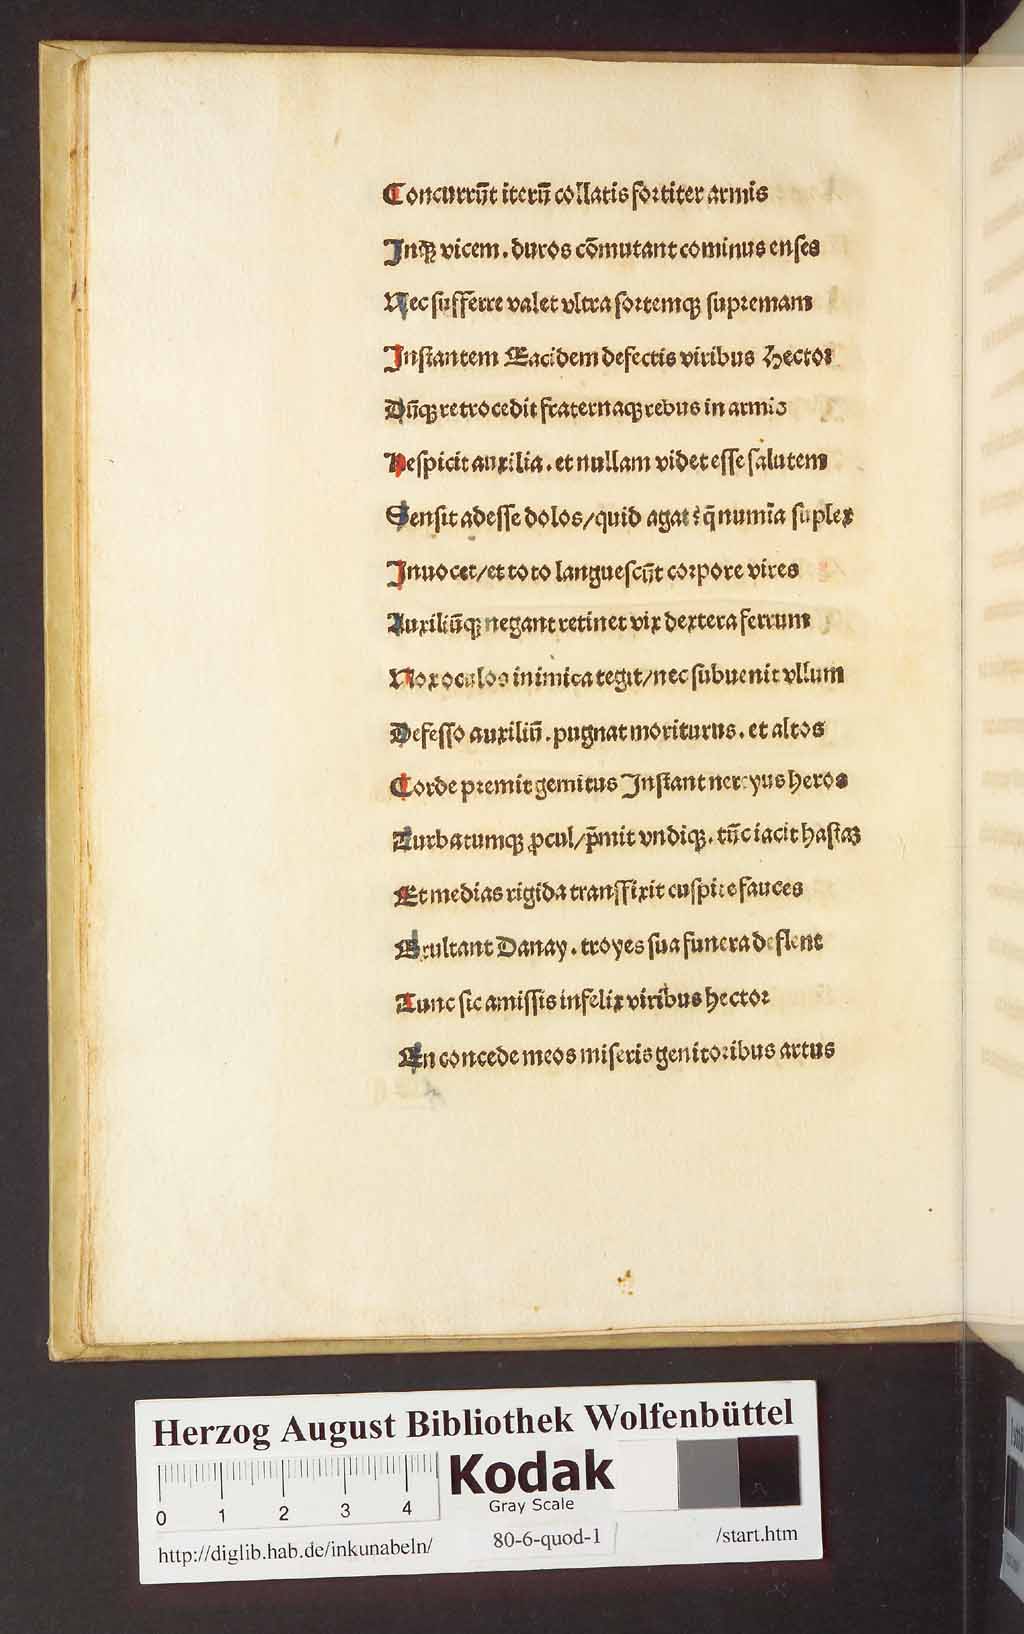 Concurrūt iterū collatis fortiter armis
Inqꝫ vicem. duros cōmutant cominus enses
Nec sufferre valet vltra sortemqꝫ supremam
Instantem Eacidem defectis viribus Hector
Dūqꝫ retrocedit fraternaqꝫ rebus in armis
Respicit auxilia. et nullam videt esse salutem
Sensit adesse dolos/quid agat: q̄ numīa suplex
Inuocet/et toto languescūt corpore vires
Auxiliūqꝫ negant retinet vix dextera ferrum
Nox oculos inimica tegit/nec subuenit vllum
Defesso auxiliū. pugnat moriturus. et altos
Corde premit gemitus Instant nereyus heros
Turbatumqꝫ ꝓcul/p̄mit vndiqꝫ. tūc iacit hastaꝫ
Et medias rigida transfixit cuspite fauces
Exultant Danay. troyes sua funera deflent
Tunc sic amissis infelix viribus hector
En concede meos miseris genitoribus artus
Herzog August Bibliothek Wolfenbüttel
Kodak
Gray Scale
0 1 2 3 4
http://diglib.hab.de/inkunabeln/ 80-6-quod-1 /start.htm